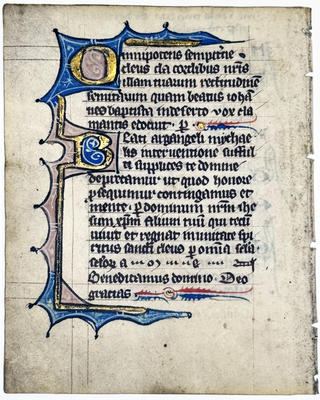 Omnipotens sempit'ne
deus da cordibus nr̄is
illam tuarum rectitudinē
semitarum quam beatus ioha
nes baptista in deserto vox cla
mantis edocuit. p̱
Beati archangeli mychae
lis interuentione sufful
ti supplices te domine
deprecamur ut quod honore
p̱sequimur contingamus et
mente. p̱ dominum nr̄m ihe
sum xp̄m filium tuū qui tecū
uiuit et regnat in unitate spi
ritus sancti deus p̱ omīa sc̄la
sc̄lor̄
Benedicamus domino. Deo
gracias